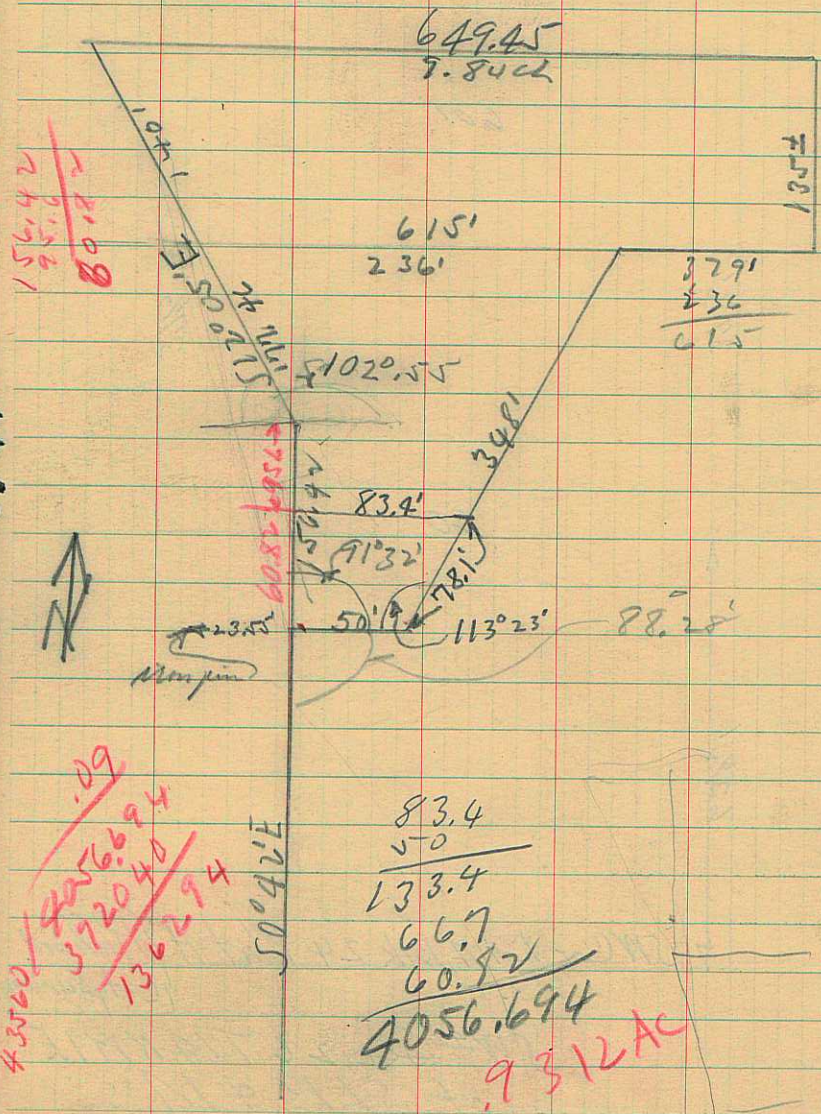 649.45
9.84 ch
140'
135±
156.42
95.6
60.82
615'
236'
379'
236
615
S12°50'E
102°.55
348'
156.42
83.4'
60.82
91°32'
78.1'
23.55
50'
113°23'
88.28'
Iron pin
S0°42'E
83.4
50
133.4
66.7
60.82
4056.694
.9312 AC
.09
43560 / 4056.694
392040
136294